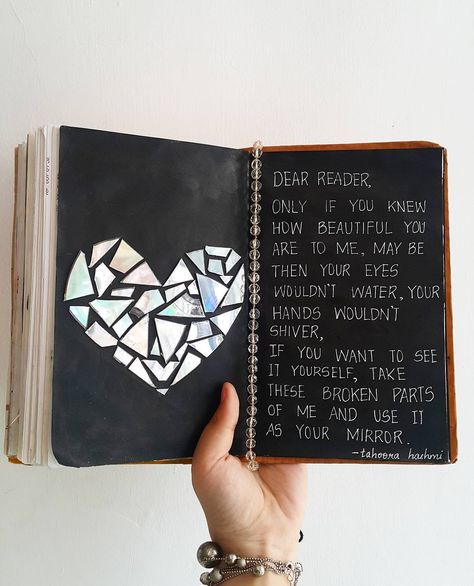 DEAR READER,
ONLY IF YOU KNEW
HOW BEAUTIFUL YOU
ARE TO ME, MAY BE
THEN YOUR EYES
WOULDN'T WATER, YOUR
HANDS WOULDN'T
SHIVER,
IF YOU WANT TO SEE
IT YOURSELF, TAKE
THESE BROKEN PARTS
OF ME AND USE IT
AS YOUR MIRROR.
-tahoora hashmi